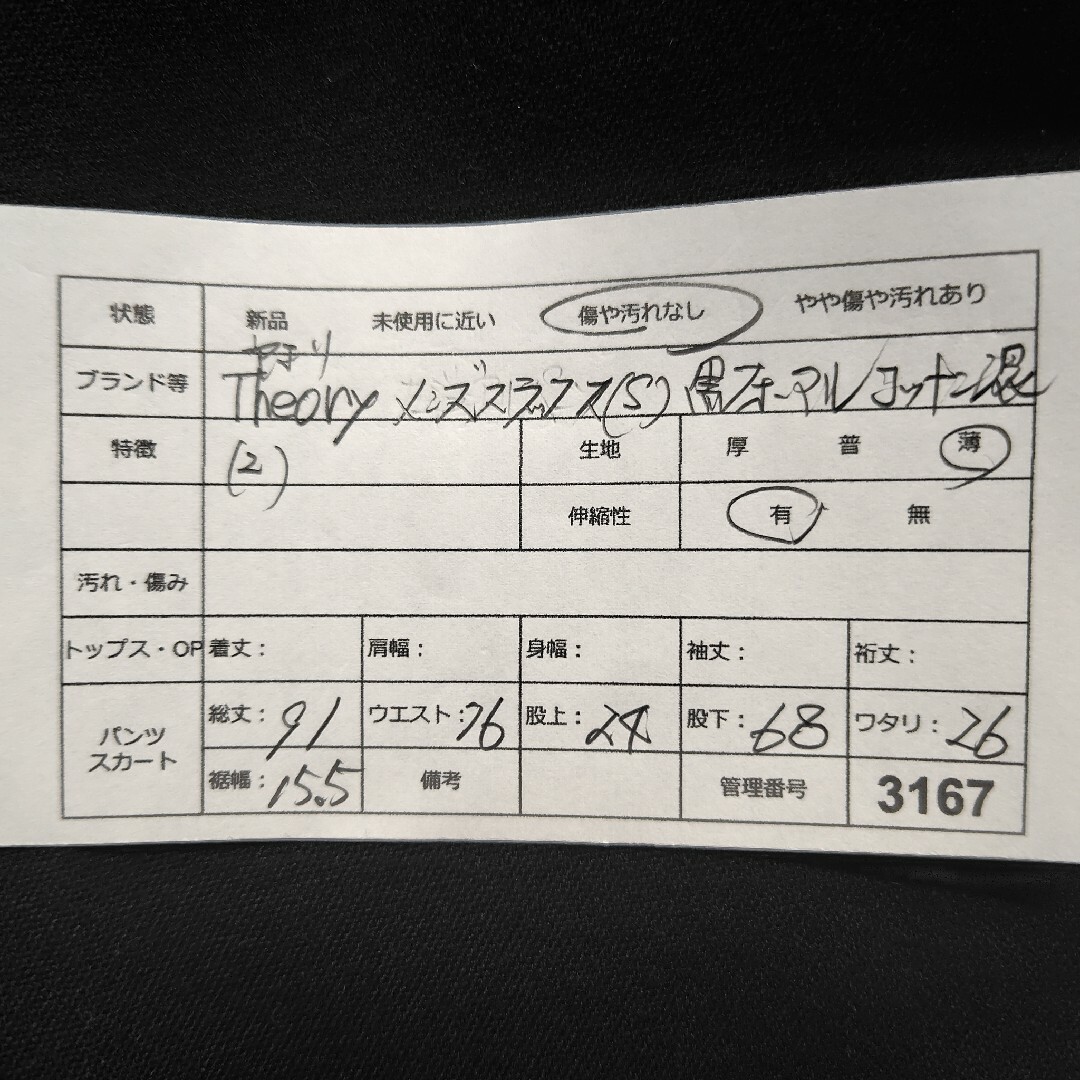 状態 新品 未使用に近い 傷や汚れなし やや傷や汚れあり
ブランド等 Theory メンズスラックス(S) 黒フォーマル コットン混
特徴 (2) 生地 厚 普 薄
伸縮性 有 無
汚れ・傷み
トップス・OP 着丈: 肩幅: 身幅: 袖丈: 裄丈:
パンツ スカート 総丈: 91 ウエスト: 76 股上: 24 股下: 68 ワタリ: 26
裾幅: 15.5 備考 管理番号 3167